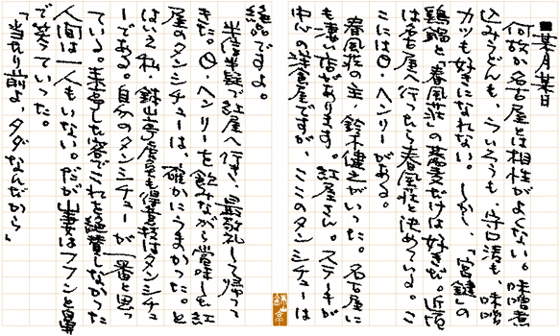 ■某月某日
何故か名古屋とは相性がよくない。味噌煮
込みうどんも、ういろうも、守口漬も、味噌
カツも好きになれない。しかし、「宮鍵」の
鶏鍋と「春風荘」の蕎麦だけは好きだ。近頃
は名古屋へ行ったら春風荘と決めている。こ
こにはO・ヘンリーがある。
春風荘の主、鈴木健之がいった。名古屋に
も凄い店があります。紅屋さん。ステーキが
中心の洋食屋ですが、ここのタンシチューは
絶品ですよ。
半信半疑で紅屋へ行き、最敬礼して帰って
きた。O・ヘンリーを飲みながら賞味した紅
屋のタンシチューは、確かにうまかった。と
はいえ私、鉢山亭虎魚も得意技はタンシチュ
ーである。自分のタンシチューが一番と思っ
ている。来亭した客がこれを絶賛しなかった
人間は一人もいない。だが山妻はフフンと鼻
で笑っていった。
「当たり前よ、タダなんだから」